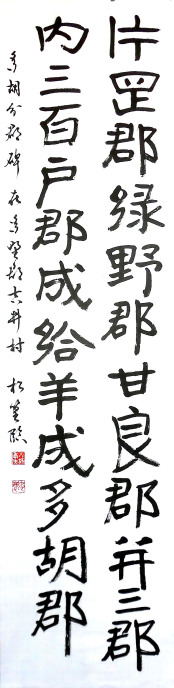 片罡郡緑野郡甘良郡并三郡
内三百戸郡成給羊成多胡郡
多胡分郡碑 在多野郡吉井村 臨